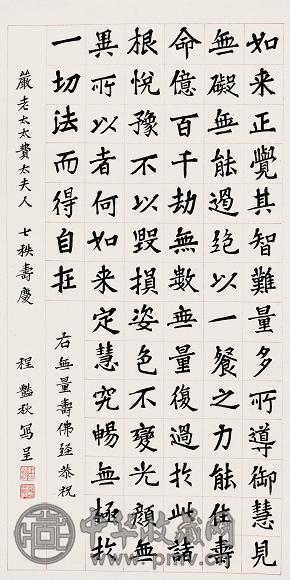 如来正覺其智難量多所導御慧見
無礙無能遏絶以一餐之力能住壽
命億百千劫無數無量復過於此諸
根悅豫不以毀損姿色不變光顏無
異所以者何如来定慧究暢無極於
一切法而得自在
右無量壽佛經恭祝
嚴老太太費太夫人 七秩壽慶
程豔秋寫呈
中华收藏网